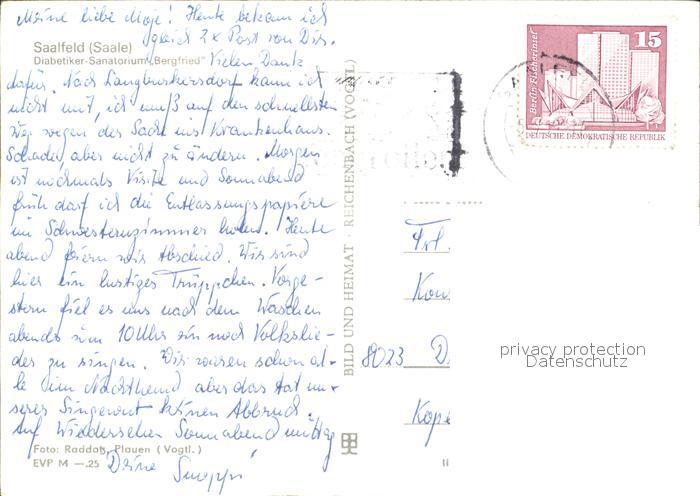 Meine liebe Moje! Heute bekam ich
gleich 2x Post von Dir.
Saalfeld (Saale)
Diabetiker-Sanatorium "Bergfried"
Vielen Dank
dafür. Nach Langburkersdorf kann ich
nicht mit, ich muß auf den schnellsten
Weg wegen der Sache ins Krankenhaus.
Schade, aber nicht zu ändern. Morgen
ist nochmals Visite und Sonnabend
früh darf ich die Entlassungspapiere
im Schwesternzimmer holen. Heute
abend feiern wir Abschied. Wir sind
hier ein lustiges Trüppchen. Vorge-
stern fiel es uns nach dem Waschen
abends um 10 Uhr ein noch Volkslie-
der zu singen. Wir waren schon al-
le im Nachthemd aber das tat un-
serer Singewut keinen Abbruch.
Auf Wiedersehen Sonnabend mittag
Deine
Foto: Raddatz, Plauen (Vogtl.)
EVP M —.25
BILD UND HEIMAT · REICHENBACH (VOGTL)
Berlin-Fischerinsel
15
DEUTSCHE DEMOKRATISCHE REPUBLIK
Frl.
8023 D
privacy protection
Datenschutz